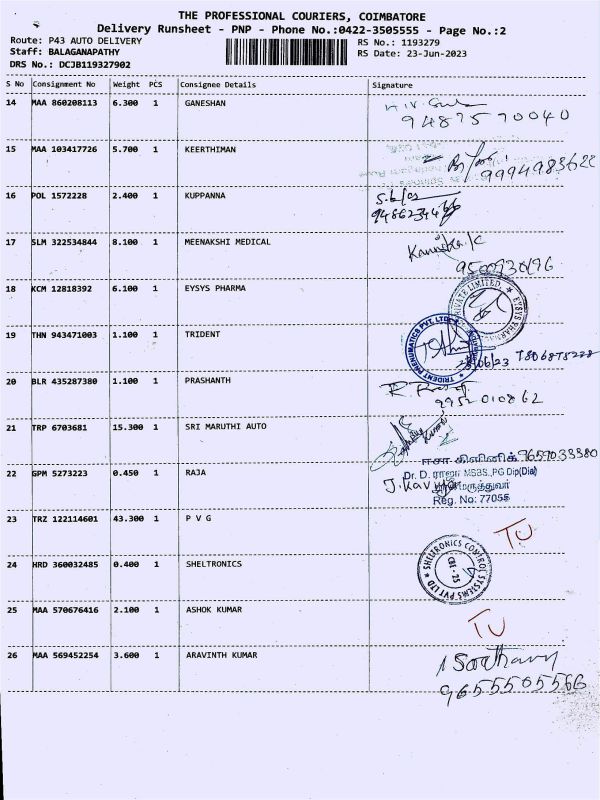 THE PROFESSIONAL COURIERS, COIMBATORE
Delivery Runsheet - PNP - Phone No.:0422-3505555 - Page No.:2
Route: P43 AUTO DELIVERY
RS No.: 1193279
Staff: BALAGANAPATHY
RS Date: 23-Jun-2023
DRS No.: DCJB119327902
S No Consignment No Weight PCS Consignee Details Signature
14 MAA 860208113 6.300 1 GANESHAN
15 MAA 103417726 5.700 1 KEERTHIMAN
9994983622
16 POL 1572228 2.400 1 KUPPANNA
17 SLM 322534844 8.100 1 MEENAKSHI MEDICAL
18 KCM 12818392 6.100 1 EYSYS PHARMA
PRIVATE LIMITED
19 THN 943471003 1.100 1 TRIDENT
TRIDENT PNEUMATICS PVT. LTD
20 BLR 435287380 1.100 1 PRASHANTH
9952010862
21 TRP 6703681 15.300 1 SRI MARUTHI AUTO
ஈசா கிளினிக் 9659033380
22 GPM 5273223 0.450 1 RAJA
Dr. D. ராஜா MBBS.,PG Dip(Dia)
J. Kavi
மருத்துவர்
Reg. No: 77055
23 TRZ 122114601 43.300 1 P V G
TU
24 HRD 360032485 0.400 1 SHELTRONICS
SHELTRONICS CONTROL SYSTEMS PVT LTD
CBE - 25
25 MAA 570676416 2.100 1 ASHOK KUMAR
TU
26 MAA 569452254 3.600 1 ARAVINTH KUMAR
9655505566